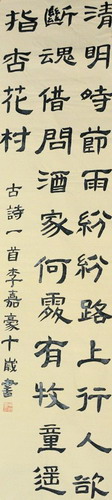 清明時節雨紛紛路上行人欲
斷魂借問酒家何處有牧童遥
指杏花村
古詩一首李嘉豪十歲書